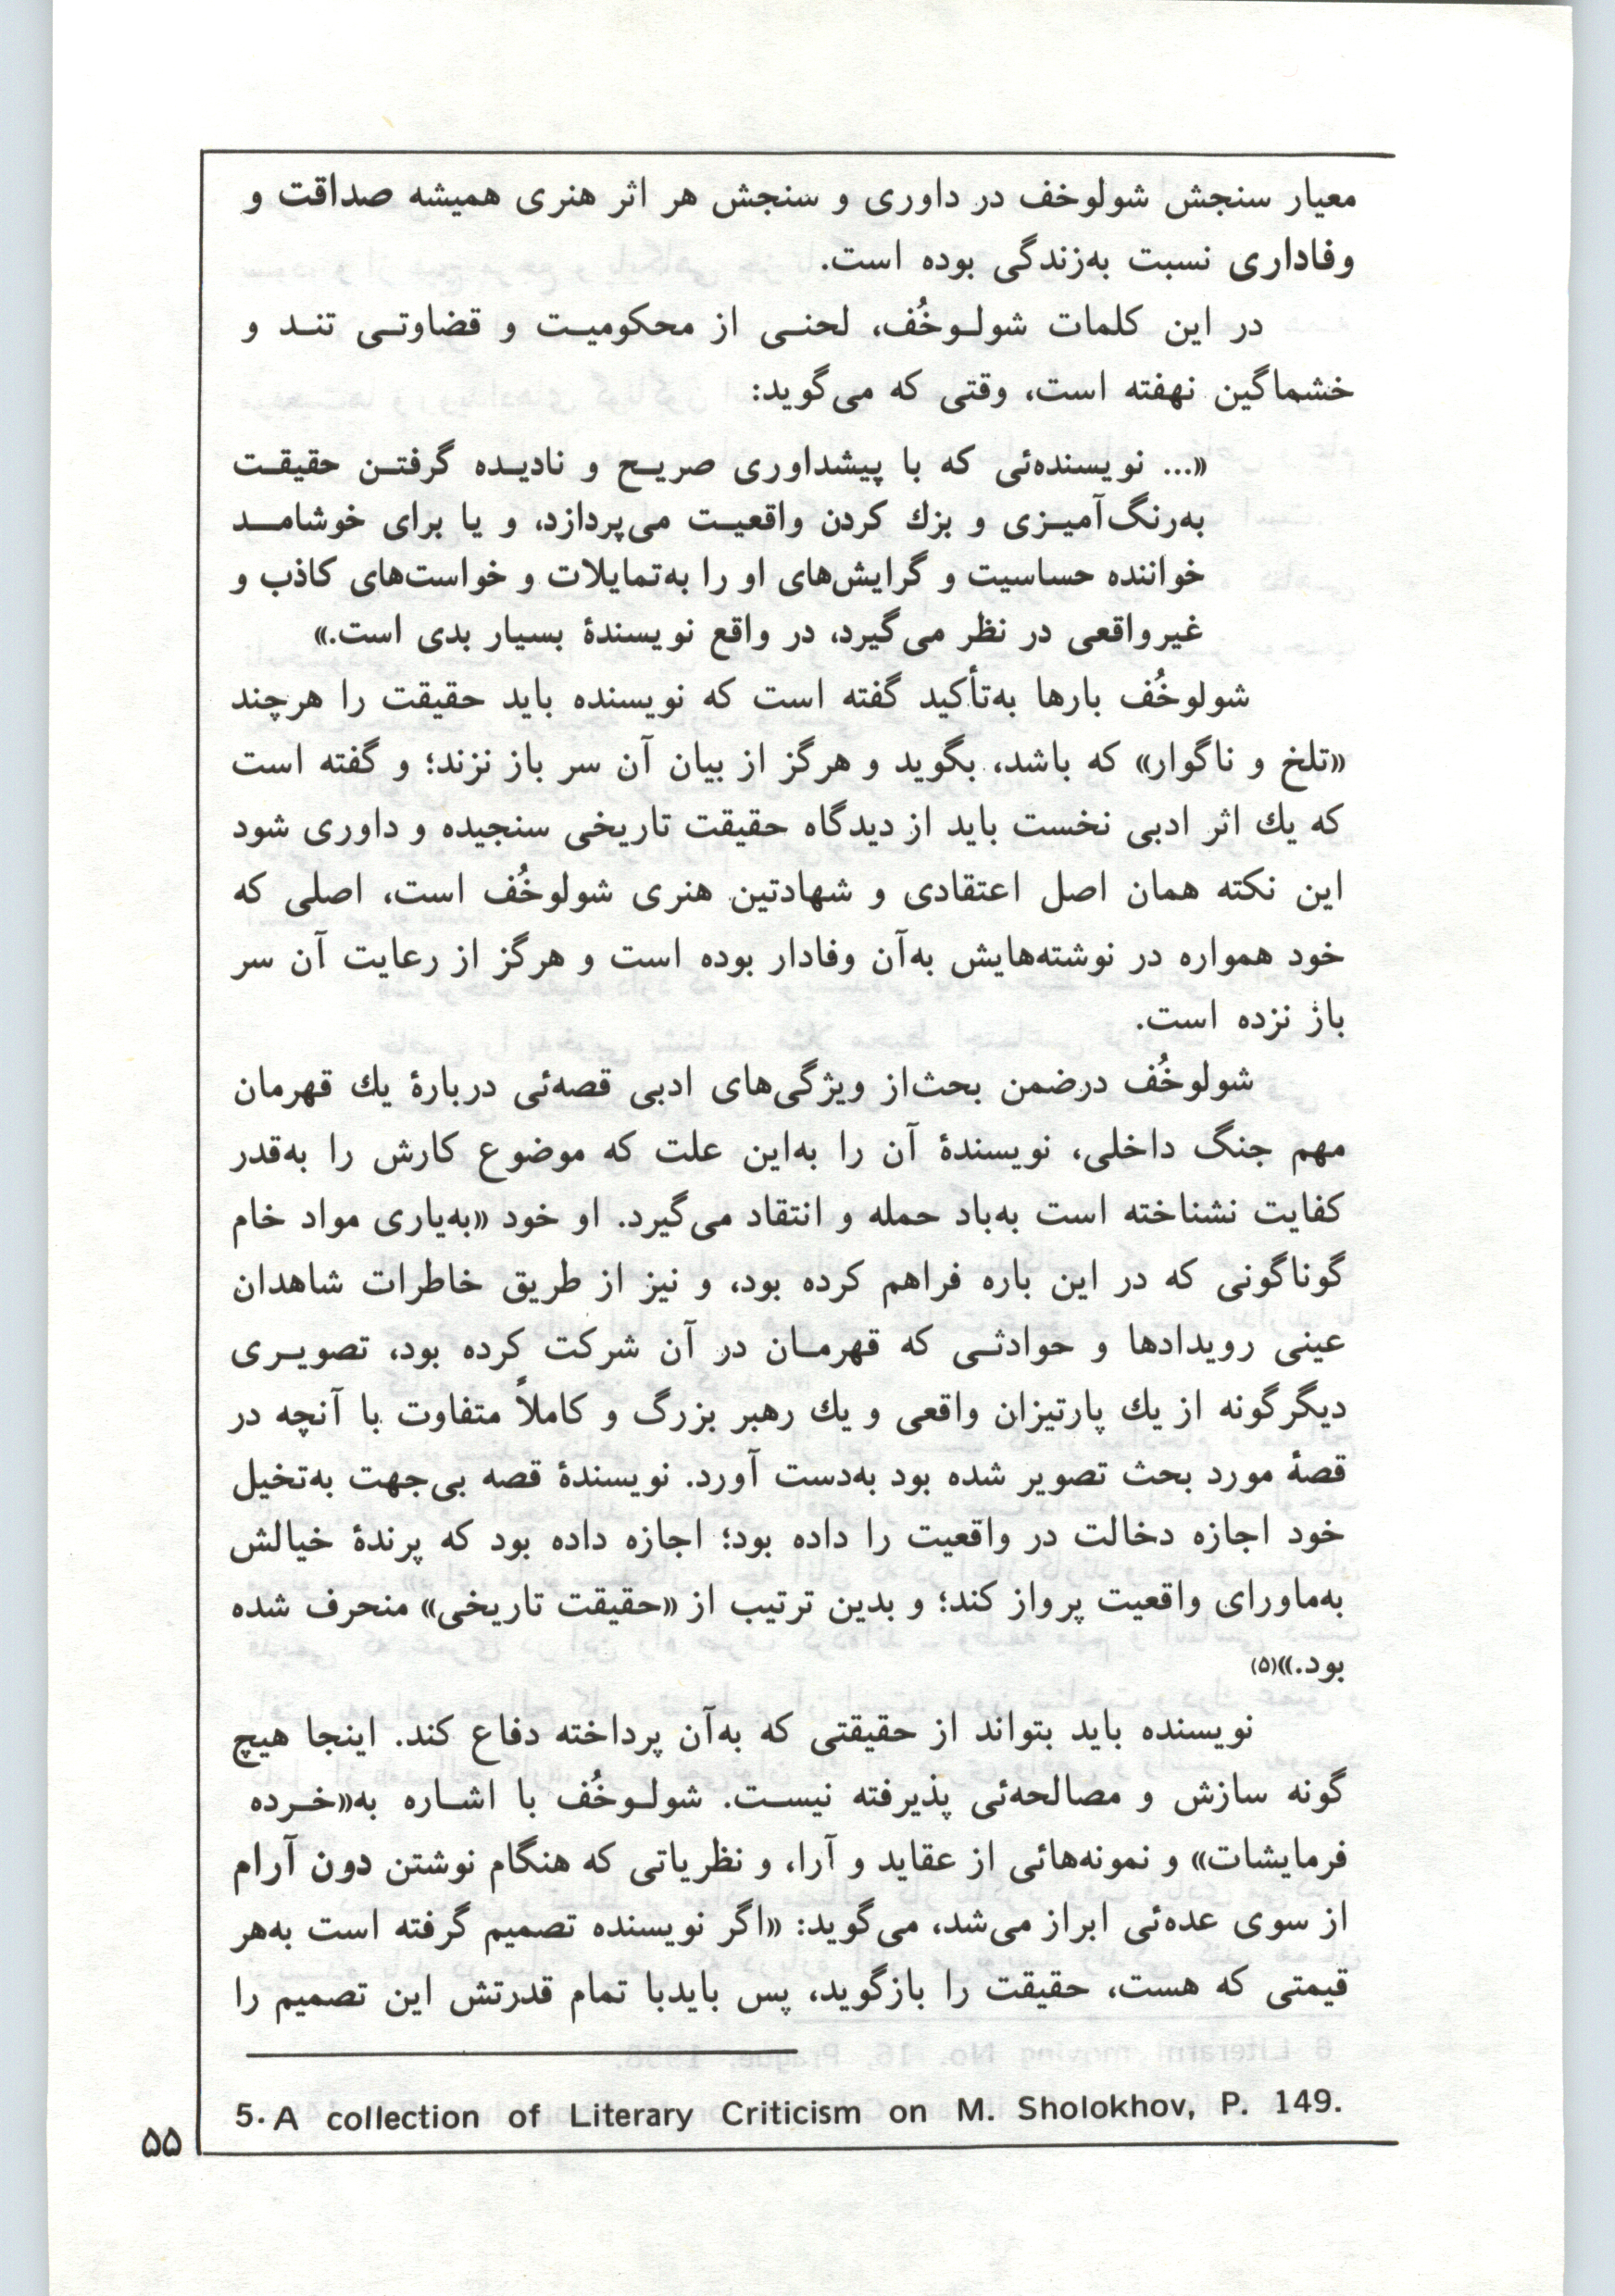 معیار سنجش شولوخف در داوری و سنجش هر اثر هنری همیشه صداقت و
وفاداری نسبت به‌زندگی بوده است.
در این کلمات شولـوخُف، لحنـی از محکومیـت و قضاوتـی تنـد و
خشماگین نهفته است، وقتی که می‌گوید:
«... نویسنده‌ئی که با پیشداوری صریـح و نادیـده گرفتـن حقیقـت
به‌رنگ‌آمیـزی و بزك کردن واقعیـت می‌پردازد، و یا برای خوشامـد
خواننده حساسیت و گرایش‌های او را به‌تمایلات و خواست‌های کاذب و
غیرواقعی در نظر می‌گیرد، در واقع نویسندۀ بسیار بدی است.»
شولوخُف بارها به‌تأکید گفته است که نویسنده باید حقیقت را هرچند
«تلخ و ناگوار» که باشد، بگوید و هرگز از بیان آن سر باز نزند؛ و گفته است
که یك اثر ادبی نخست باید از دیدگاه حقیقت تاریخی سنجیده و داوری شود
این نکته همان اصل اعتقادی و شهادتین هنری شولوخُف است، اصلی که
خود همواره در نوشته‌هایش به‌آن وفادار بوده است و هرگز از رعایت آن سر
باز نزده است.
شولوخُف درضمن بحث‌از ویژگی‌های ادبی قصه‌ئی دربارۀ یك قهرمان
مهم جنگ داخلی، نویسندۀ آن را به‌این علت که موضوع کارش را به‌قدر
کفایت نشناخته است به‌باد حمله و انتقاد می‌گیرد. او خود «به‌یاری مواد خام
گوناگونی که در این باره فراهم کرده بود، و نیز از طریق خاطرات شاهدان
عینی رویدادها و حوادثـی که قهرمـان در آن شرکت کرده بود، تصویـری
دیگرگونه از یك پارتیزان واقعی و یك رهبر بزرگ و کاملاً متفاوت با آنچه در
قصۀ مورد بحث تصویر شده بود به‌دست آورد. نویسندۀ قصه بی‌جهت به‌تخیل
خود اجازه دخالت در واقعیت را داده بود؛ اجازه داده بود که پرندۀ خیالش
به‌ماورای واقعیت پرواز کند؛ و بدین ترتیب از «حقیقت تاریخی» منحرف شده
بود.»(۵)
نویسنده باید بتواند از حقیقتی که به‌آن پرداخته دفاع کند. اینجا هیچ
گونه سازش و مصالحه‌ئی پذیرفته نیسـت. شولـوخُف با اشـاره به«خـرده
فرمایشات» و نمونه‌هائی از عقاید و آرا، و نظریاتی که هنگام نوشتن دون آرام
از سوی عده‌ئی ابراز می‌شد، می‌گوید: «اگر نویسنده تصمیم گرفته است به‌هر
قیمتی که هست، حقیقت را بازگوید، پس بایدبا تمام قدرتش این تصمیم را
5. A collection of Literary Criticism on M. Sholokhov, P. 149.
۵۵